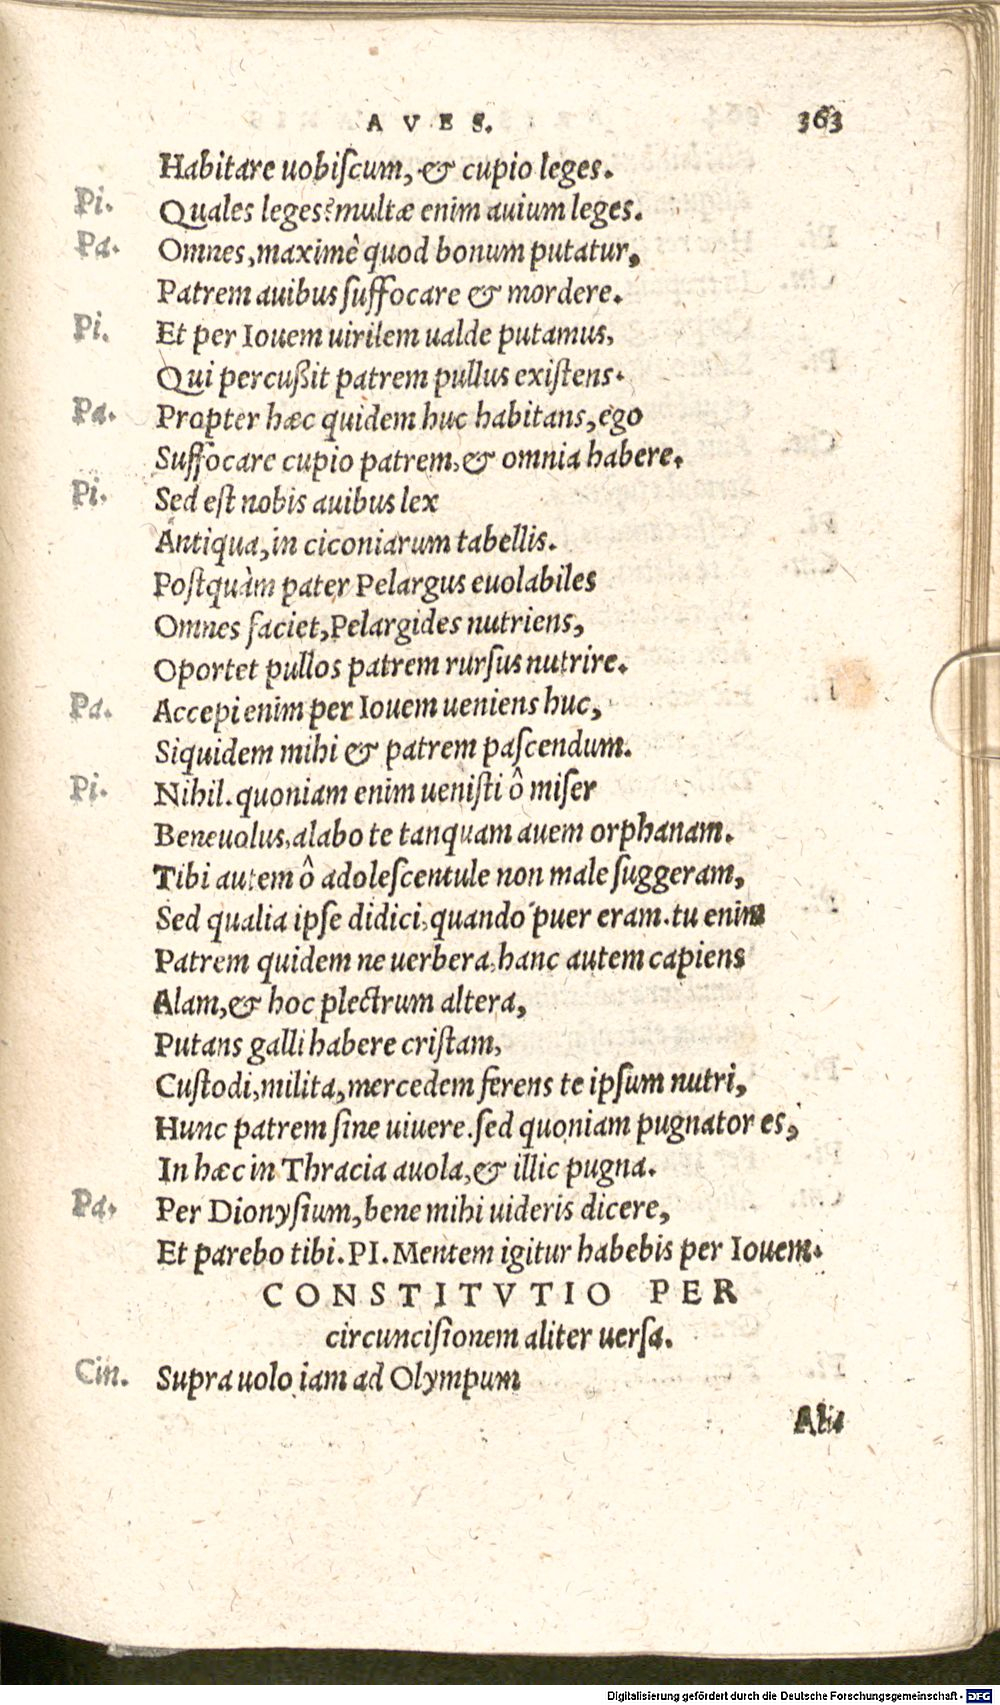 AVES. 363
Habitare uobiſcum, & cupio leges.
Pi. Quales leges? multæ enim auium leges.
Pa. Omnes, maximè quod bonum putatur,
Patrem auibus ſuffocare & mordere.
Pi. Et per Iouem uirilem ualde putamus,
Qui percußit patrem pullus exiſtens.
Pa. Propter hæc quidem huc habitans, ego
Suffocare cupio patrem, & omnia habere.
Pi. Sed eſt nobis auibus lex
Antiqua, in ciconiarum tabellis.
Poſtquàm pater Pelargus euolabiles
Omnes faciet, Pelargides nutriens,
Oportet pullos patrem rurſus nutrire.
Pa. Accepi enim per Iouem ueniens huc,
Siquidem mihi & patrem paſcendum.
Pi. Nihil. quoniam enim ueniſti ô miſer
Beneuolus, alabo te tanquam auem orphanam.
Tibi autem ô adoleſcentule non male ſuggeram,
Sed qualia ipſe didici, quando puer eram. tu enim
Patrem quidem ne uerbera, hanc autem capiens
Alam, & hoc plectrum altera,
Putans galli habere criſtam,
Cuſtodi, milita, mercedem ferens te ipſum nutri,
Hunc patrem ſine uiuere. ſed quoniam pugnator es,
In hæc in Thracia auola, & illic pugna.
Pa. Per Dionyſium, bene mihi uideris dicere,
Et parebo tibi. PI. Mentem igitur habebis per Iouem.
CONSTITVTIO PER
circunciſionem aliter uerſa.
Cin. Supra uolo iam ad Olympum
Alis
Digitalisierung gefördert durch die Deutsche Forschungsgemeinschaft - DFG